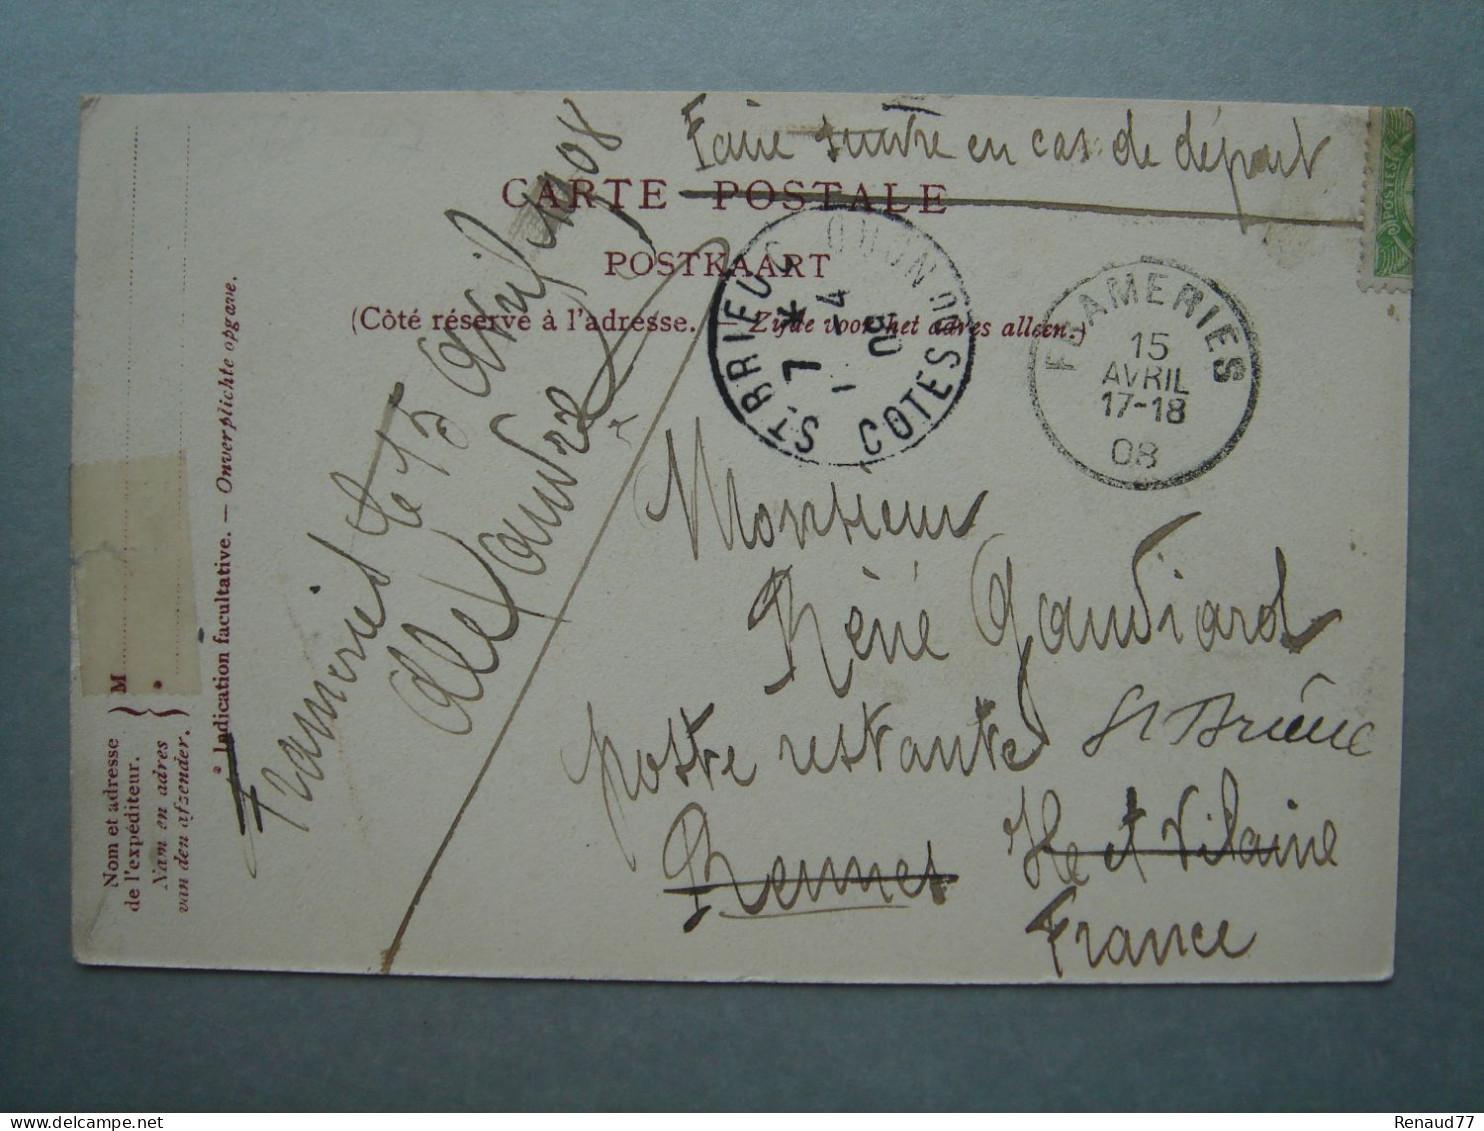 Faire suivre en cas de départ
CARTE POSTALE
POSTKAART
(Côté réservé à l'adresse. — Zijde voor het adres alleen.)
POSTES
ST BRIEUC
COTES DU NORD
7 * 
-4
08
FRAMERIES
15
AVRIL
17-18
08
Frameries le 15 Avril 1908
Alexandre
Monsieur
Réné Gaudiard
poste restante St Brieuc
Rennes Ille et Vilaine
France
* Indication facultative. — Onverplichte opgave.
M
Nom et adresse
de l'expéditeur.
Nam en adres
van den afzender.
*
Renaud77